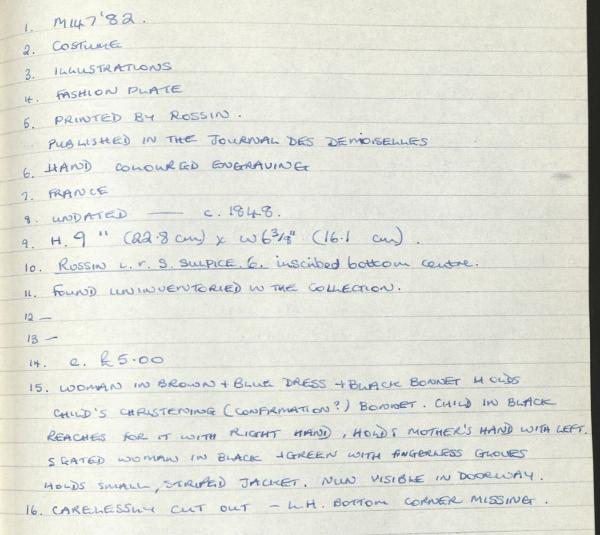 1. M147'82.
2. COSTUME
3. ILLUSTRATIONS
4. FASHION PLATE
5. PRINTED BY ROSSIN.
PUBLISHED IN THE JOURNAL DES DEMOISELLES
6. HAND COLOURED ENGRAVING
7. FRANCE
8. UNDATED — c. 1848.
9. H. 9" (22.8 cm) x W 6 3/8" (16.1 cm).
10. ROSSIN L. r. S. SULPICE. 6. inscribed bottom centre.
11. FOUND UNINVENTORIED IN THE COLLECTION.
12 —
13 —
14. c. £5.00
15. WOMAN IN BROWN + BLUE DRESS + BLACK BONNET HOLDS
CHILD'S CHRISTENING (CONFIRMATION?) BONNET. CHILD IN BLACK
REACHES FOR IT WITH RIGHT HAND, HOLDS MOTHER'S HAND WITH LEFT.
SEATED WOMAN IN BLACK + GREEN WITH FINGERLESS GLOVES
HOLDS SMALL, STRIPED JACKET. NUN VISIBLE IN DOORWAY.
16. CARELESSLY CUT OUT - L.H. BOTTOM CORNER MISSING.